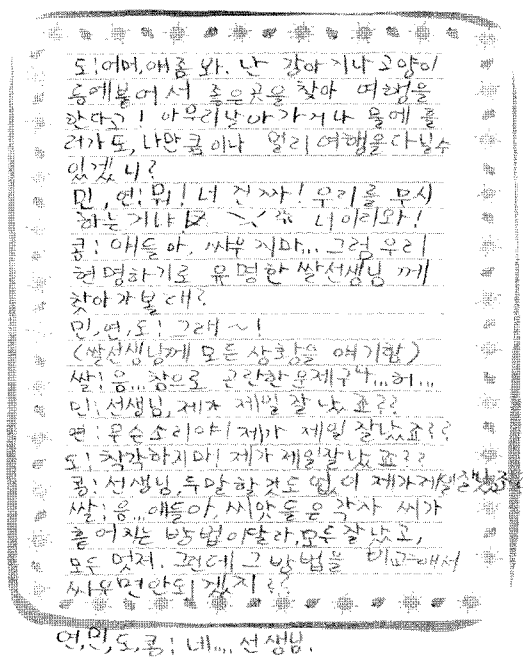 도: 어머, 얘좀 봐. 난 강아지나 고양이
등에붙어서 좋은곳을 찾아 여행을
한다고! 아무리날아가거나 물에 흘
러가도, 나만큼이나 멀리 여행을다닐수
있겠니?
민, 연: 뭐! 너 진짜! 우리를 무시
하는거냐 너이리와!
콩: 얘들아, 싸우지마... 그럼 우리
현명하기로 유명한 쌀선생님께
찾아가볼래?
민,연,도: 그래~!
(쌀선생님께 모든 상황을 얘기함)
쌀: 음...참으로 곤란한문제구나...허...
민: 선생님, 제가 제일 잘났죠??
연: 무슨소리야! 제가 제일 잘났죠??
도: 착각하지마! 제가제일잘났죠??
콩: 선생님,두말할것도 없이 제가제일잘났죠??
쌀: 음...얘들아, 씨앗들은 각자 씨가
흩어지는 방법이달라,모두잘났고,
모두 멋져. 그런데 그 방법을 비교해서
싸우면안되겠지??
연,민,도,콩: 네... 선생님.